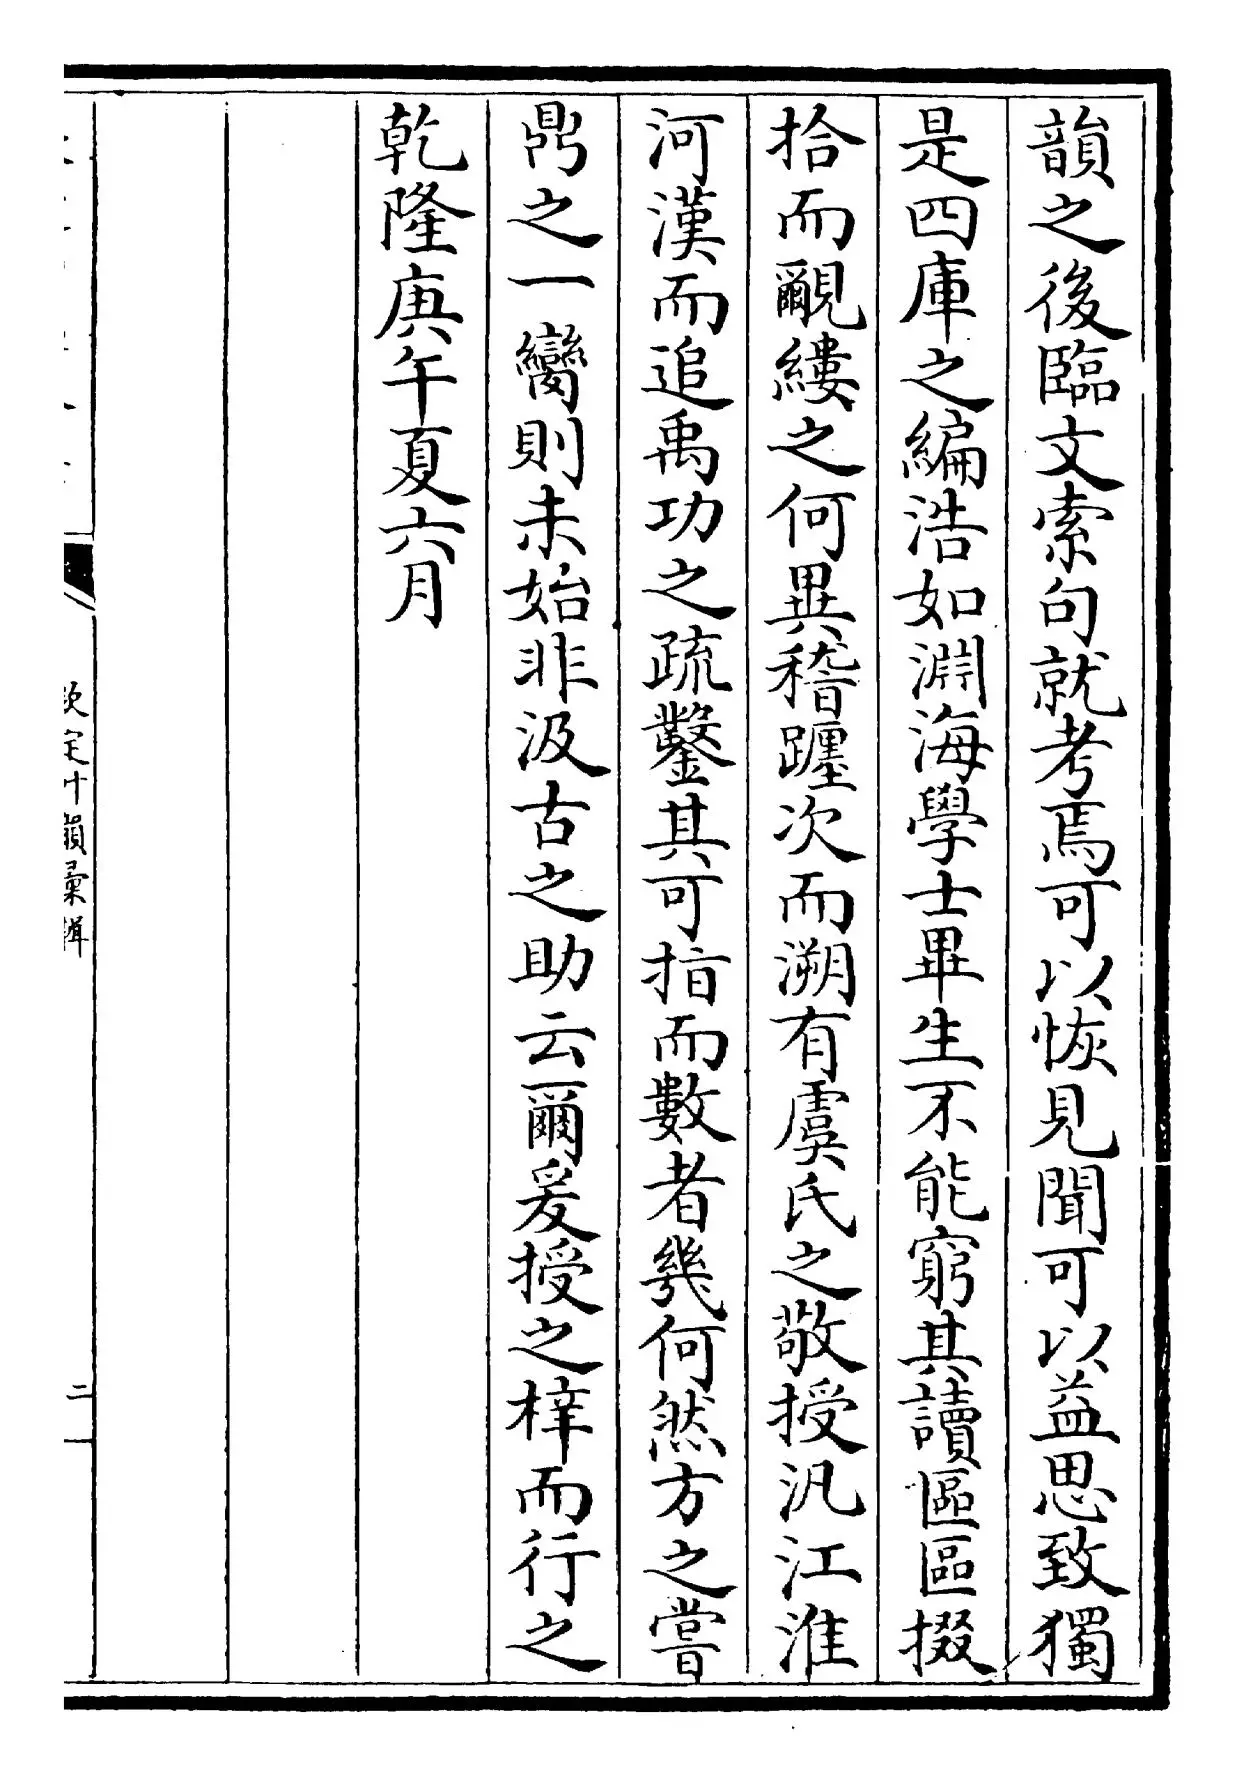 韻之後臨文索句就考焉可以恢見聞可以益思致獨
是四庫之編浩如淵海學士畢生不能窮其讀區區掇
拾而覼縷之何異稽躔次而溯有虞氏之敬授汎江淮
河漢而追禹功之疏鑿其可指而數者幾何然方之嘗
鼎之一臠則未始非汲古之助云爾爰授之梓而行之
乾隆庚午夏六月
欽定叶韻彙輯
二